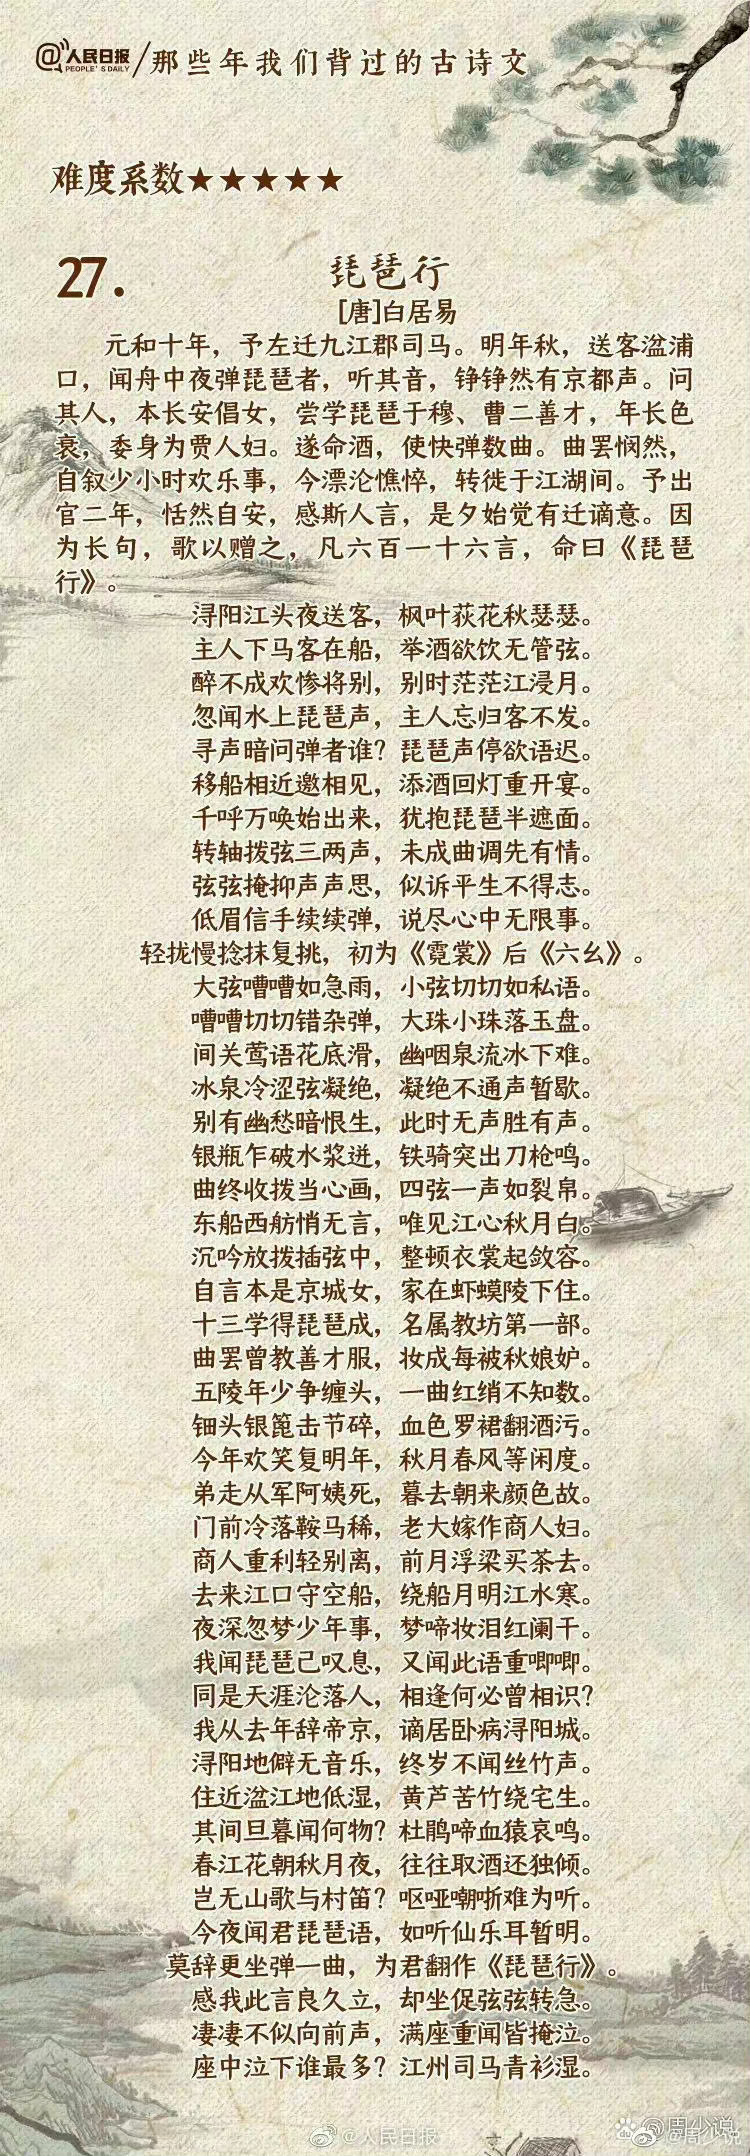 @人民日报 PEOPLE'S DAILY / 那些年我们背过的古诗文
难度系数★★★★★
27. 琵琶行
[唐]白居易
元和十年，予左迁九江郡司马。明年秋，送客湓浦
口，闻舟中夜弹琵琶者，听其音，铮铮然有京都声。问
其人，本长安倡女，尝学琵琶于穆、曹二善才，年长色
衰，委身为贾人妇。遂命酒，使快弹数曲。曲罢悯然，
自叙少小时欢乐事，今漂沦憔悴，转徙于江湖间。予出
官二年，恬然自安，感斯人言，是夕始觉有迁谪意。因
为长句，歌以赠之，凡六百一十六言，命曰《琵琶
行》。
浔阳江头夜送客，枫叶荻花秋瑟瑟。
主人下马客在船，举酒欲饮无管弦。
醉不成欢惨将别，别时茫茫江浸月。
忽闻水上琵琶声，主人忘归客不发。
寻声暗问弹者谁？琵琶声停欲语迟。
移船相近邀相见，添酒回灯重开宴。
千呼万唤始出来，犹抱琵琶半遮面。
转轴拨弦三两声，未成曲调先有情。
弦弦掩抑声声思，似诉平生不得志。
低眉信手续续弹，说尽心中无限事。
轻拢慢捻抹复挑，初为《霓裳》后《六幺》。
大弦嘈嘈如急雨，小弦切切如私语。
嘈嘈切切错杂弹，大珠小珠落玉盘。
间关莺语花底滑，幽咽泉流冰下难。
冰泉冷涩弦凝绝，凝绝不通声暂歇。
别有幽愁暗恨生，此时无声胜有声。
银瓶乍破水浆迸，铁骑突出刀枪鸣。
曲终收拨当心画，四弦一声如裂帛。
东船西舫悄无言，唯见江心秋月白。
沉吟放拨插弦中，整顿衣裳起敛容。
自言本是京城女，家在虾蟆陵下住。
十三学得琵琶成，名属教坊第一部。
曲罢曾教善才服，妆成每被秋娘妒。
五陵年少争缠头，一曲红绡不知数。
钿头银篦击节碎，血色罗裙翻酒污。
今年欢笑复明年，秋月春风等闲度。
弟走从军阿姨死，暮去朝来颜色故。
门前冷落鞍马稀，老大嫁作商人妇。
商人重利轻别离，前月浮梁买茶去。
去来江口守空船，绕船月明江水寒。
夜深忽梦少年事，梦啼妆泪红阑干。
我闻琵琶已叹息，又闻此语重唧唧。
同是天涯沦落人，相逢何必曾相识？
我从去年辞帝京，谪居卧病浔阳城。
浔阳地僻无音乐，终岁不闻丝竹声。
住近湓江地低湿，黄芦苦竹绕宅生。
其间旦暮闻何物？杜鹃啼血猿哀鸣。
春江花朝秋月夜，往往取酒还独倾。
岂无山歌与村笛？呕哑嘲哳难为听。
今夜闻君琵琶语，如听仙乐耳暂明。
莫辞更坐弹一曲，为君翻作《琵琶行》。
感我此言良久立，却坐促弦弦转急。
凄凄不似向前声，满座重闻皆掩泣。
座中泣下谁最多？江州司马青衫湿。
@人民日报
@周少说